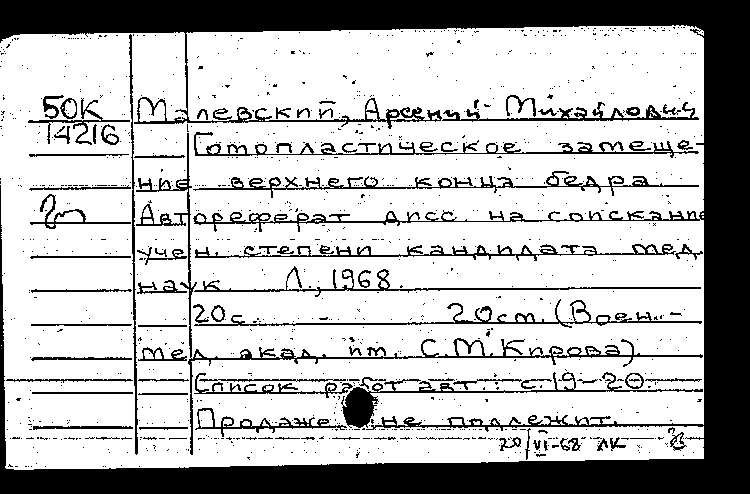 50К Малевский, Арсений Михайлович
14216 Гомопластическое замеще-
ние верхнего конца бедра.
Автореферат дисс. на соискание
учен. степени кандидата мед.
наук. Л., 1968.
20с. - 20см. (Воен.-
мед. акад. им. С.М.Кирова).
Список работ авт.: с.19-20.
Продаже не подлежит.
20/VI-68 ЛК